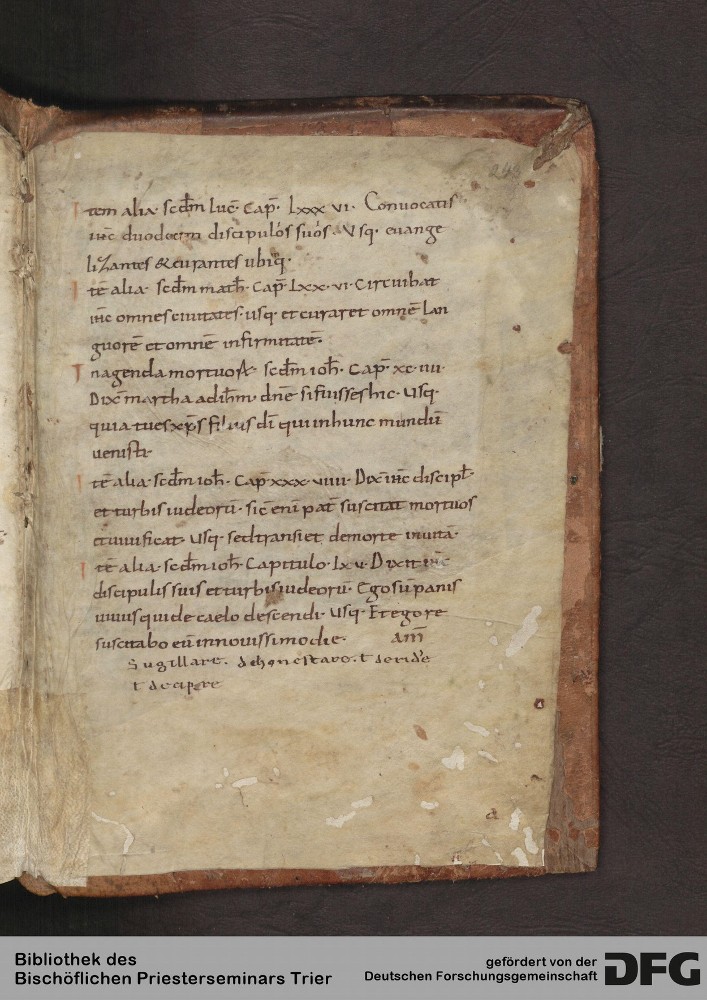 Item alia· scd̄m luc̄· Cap̄· Lxxx vi· Convocatis
ih̄c duodecim discipulos suos· Usq· euange
lizantes & curantes ubiq·
Itē alia· scd̄m math̄· Cap̄ Lxx·vi· Circuibat
ih̄c omnes ciuitates· usq· et curaret omnē lan
guorē et omnē infirmitatē·
In agenda mortuoꝝ· scd̄m ioh̄· Cap̄· xc·iiii·
Dix̄ martha ad ih̄m· dn̄e si fuisses hic· Usq·
quia tu es xp̄s filius dī qui in hunc mundū
uenisti·
Itē alia· scd̄m ioh̄· Cap̄ xxx·viiii· Dix̄ ih̄c discipl̄·
et turbis iudeorū· sic̄ enī pat̄ suscitat mortuos
et uiuificat· Usq· sed transiet de morte in uitā·
Itē alia· scd̄m ioh̄ Capitulo· Lx·v· Dixit ih̄c·
discipulis suis et turbis iudeorū· Ego sū panis
uiuus qui de caelo descendi· Usq· Et ego re
suscitabo eū in nouissimo die· am̄
Sugillare. dehonestare. ł deride
ł decipere
Bibliothek des
Bischöflichen Priesterseminars Trier
gefördert von der
Deutschen Forschungsgemeinschaft
DFG